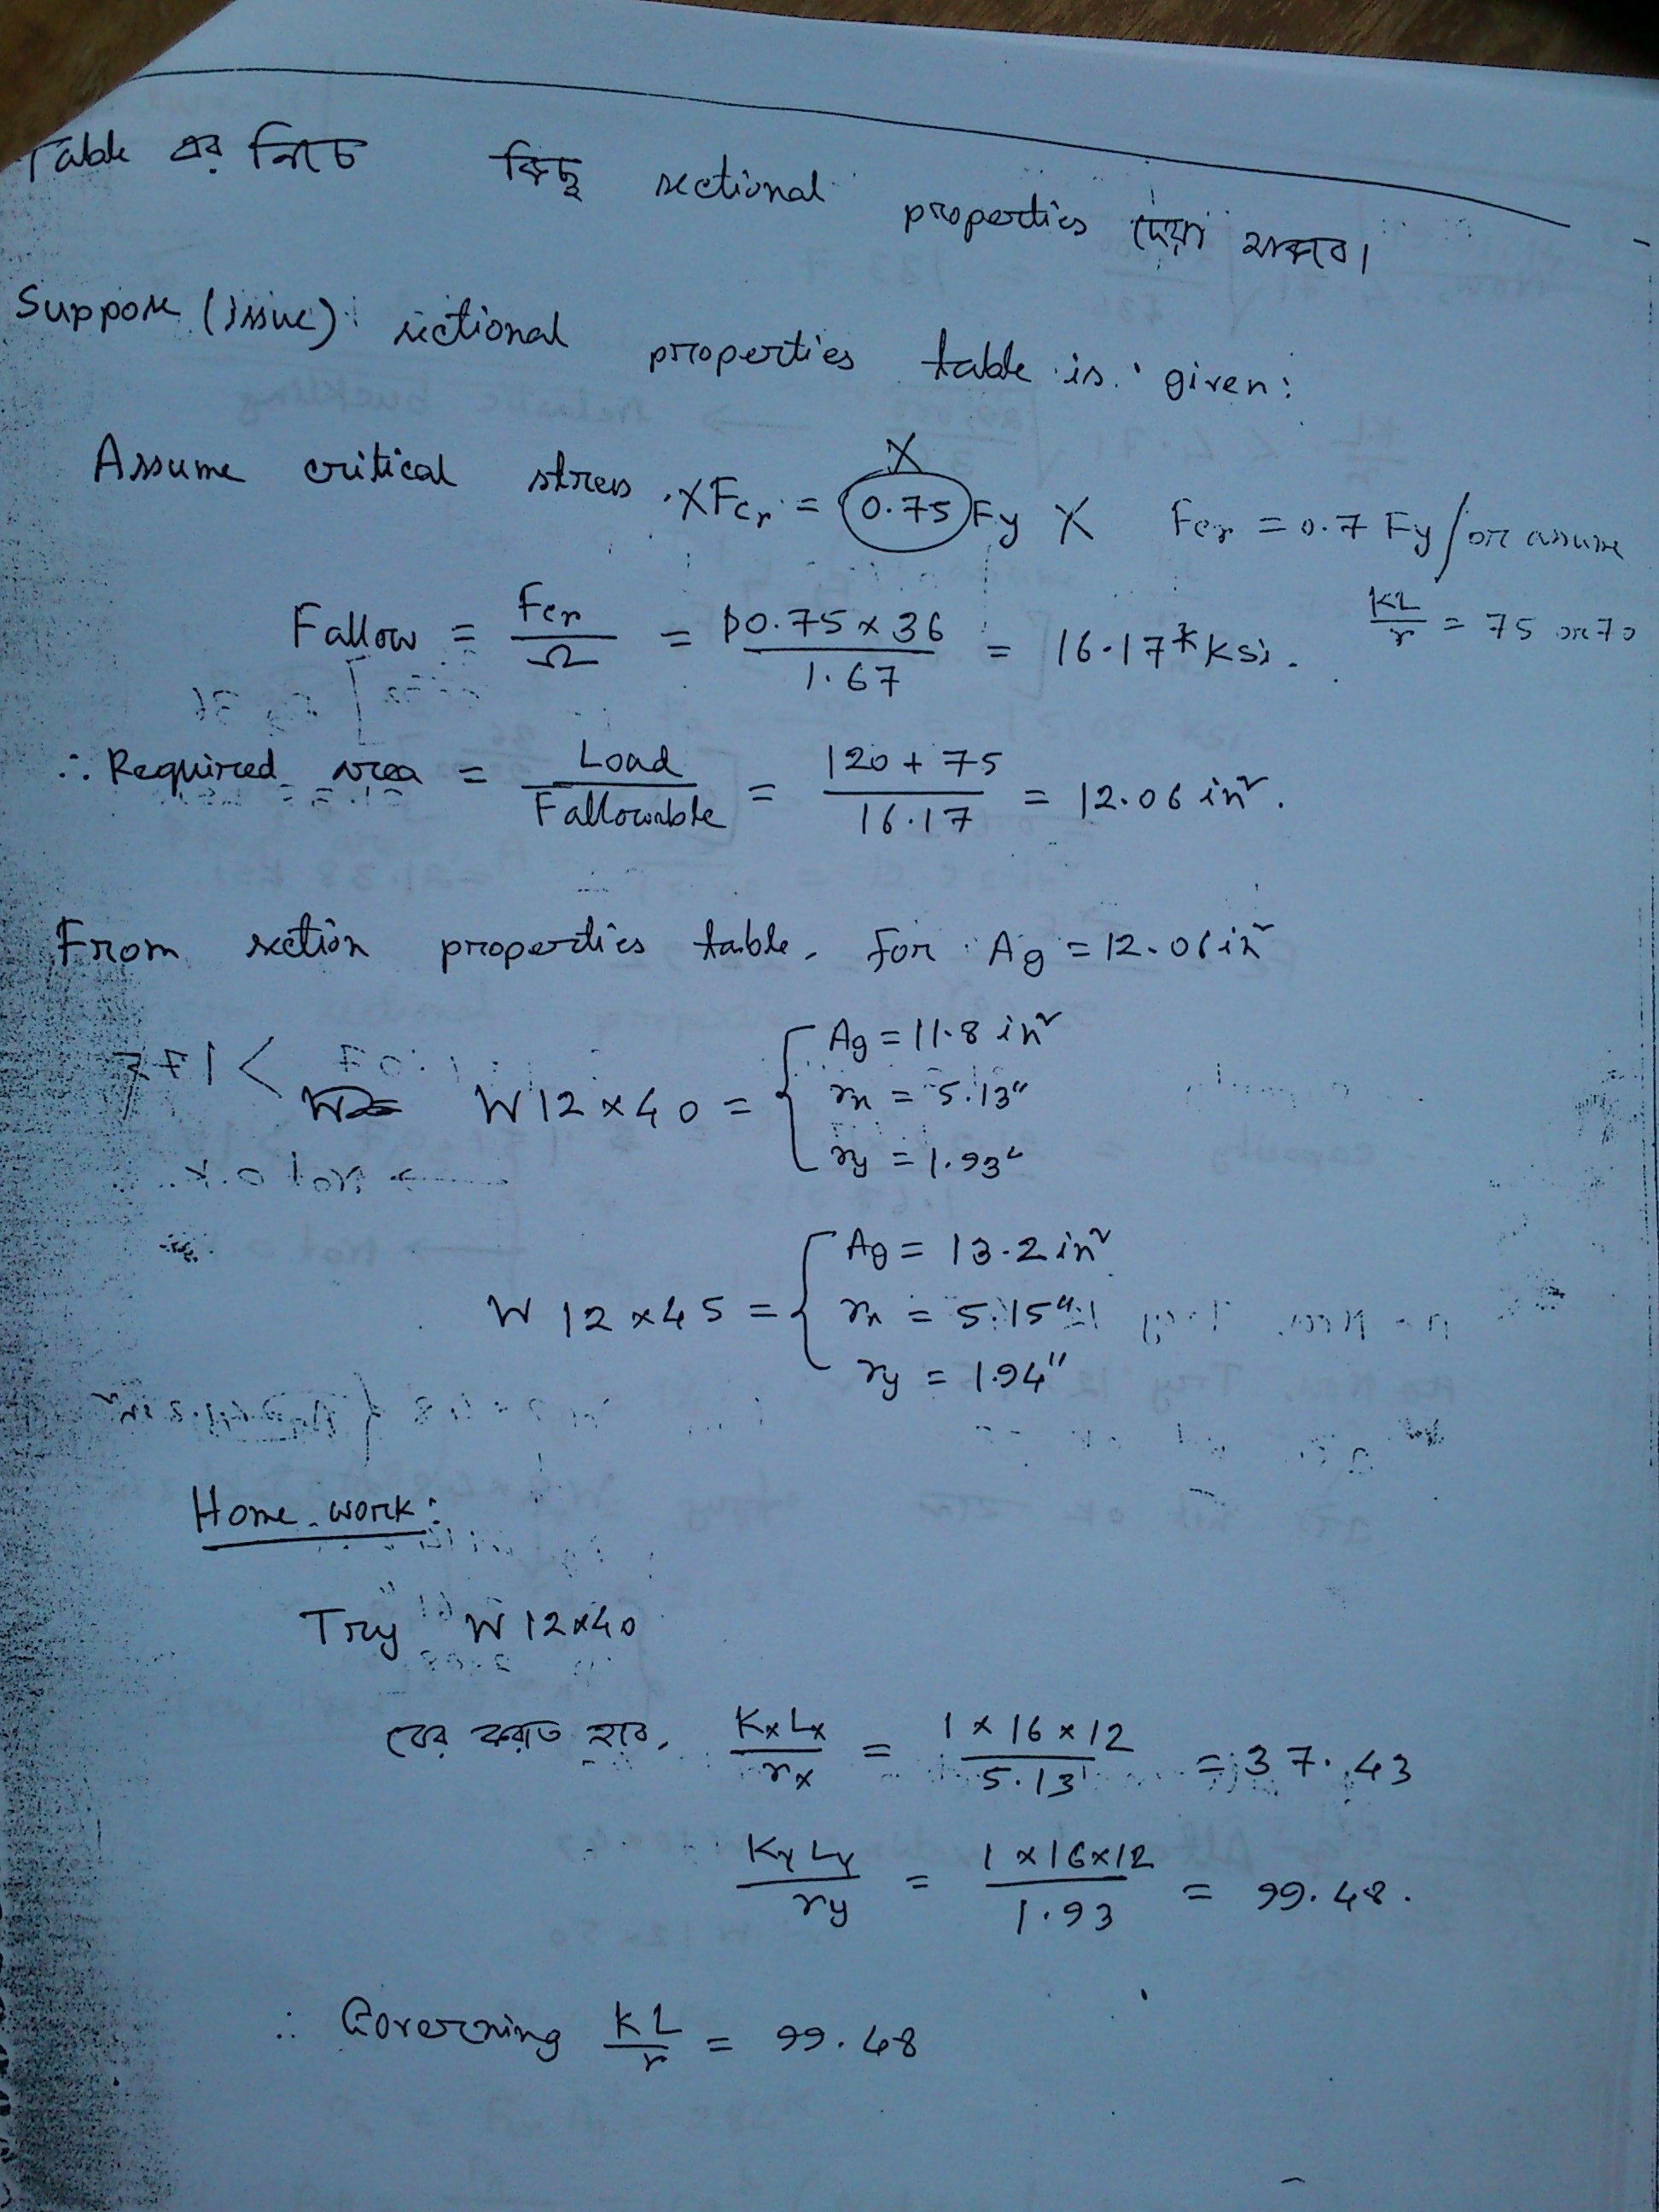 Table এর নিচে কিছু sectional properties দেয়া থাকবে।
Suppose (issue) sectional properties table is given:
Assume critical stress X Fcr = 0.75 Fy X Fcr = 0.7 Fy / or assume
X
KL/r = 75 or 70
Fallow = Fcr/Ω = 0.75 x 36/1.67 = 16.17 ksi.
∴ Required area = Load/Fallowable = 120 + 75/16.17 = 12.06 in².
From section properties table, for Ag = 12.06 in²
W12x40 = { Ag = 11.8 in²
rx = 5.13"
ry = 1.93"
W 12x45 = { Ag = 13.2 in²
rx = 5.15"
ry = 1.94"
Home work:
Try W 12x40
বের করতে হবে, KxLx/rx = 1 x 16 x 12/5.13 = 37.43
KyLy/ry = 1 x 16 x 12/1.93 = 99.48.
∴ Governing KL/r = 99.48